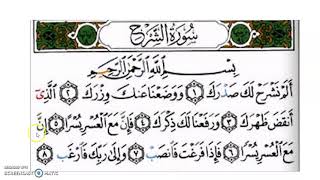 سُورَةُ الشَّرْحِ
بِسْمِ ٱللَّهِ ٱلرَّحْمَٰنِ ٱلرَّحِيمِ
أَلَمْ نَشْرَحْ لَكَ صَدْرَكَ ١ وَوَضَعْنَا عَنكَ وِزْرَكَ ٢ ٱلَّذِىٓ
أَنقَضَ ظَهْرَكَ ٣ وَرَفَعْنَا لَكَ ذِكْرَكَ ٤ فَإِنَّ مَعَ ٱلْعُسْرِ يُسْرًا ٥ إِنَّ
مَعَ ٱلْعُسْرِ يُسْرًا ٦ فَإِذَا فَرَغْتَ فَٱنصَبْ ٧ وَإِلَىٰ رَبِّكَ فَٱرْغَب ٨
SCREENCAST
MATIC